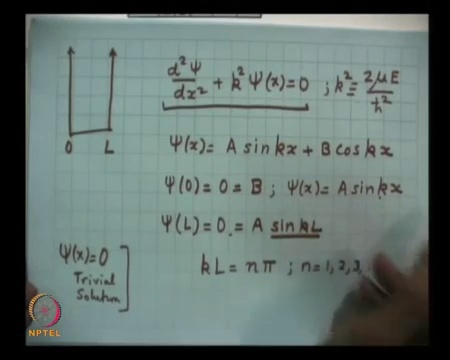 d²Ψ/dx² + k²Ψ(x)=0 ; k² = 2μE/ħ²
0 L
Ψ(x)= A sin kx + B cos kx
Ψ(0) = 0 = B ; Ψ(x)= A sin kx
Ψ(L)= 0 = A sin kL
Ψ(x)=0
Trivial
Solution
kL = nπ ; n=1,2,3,
NPTEL